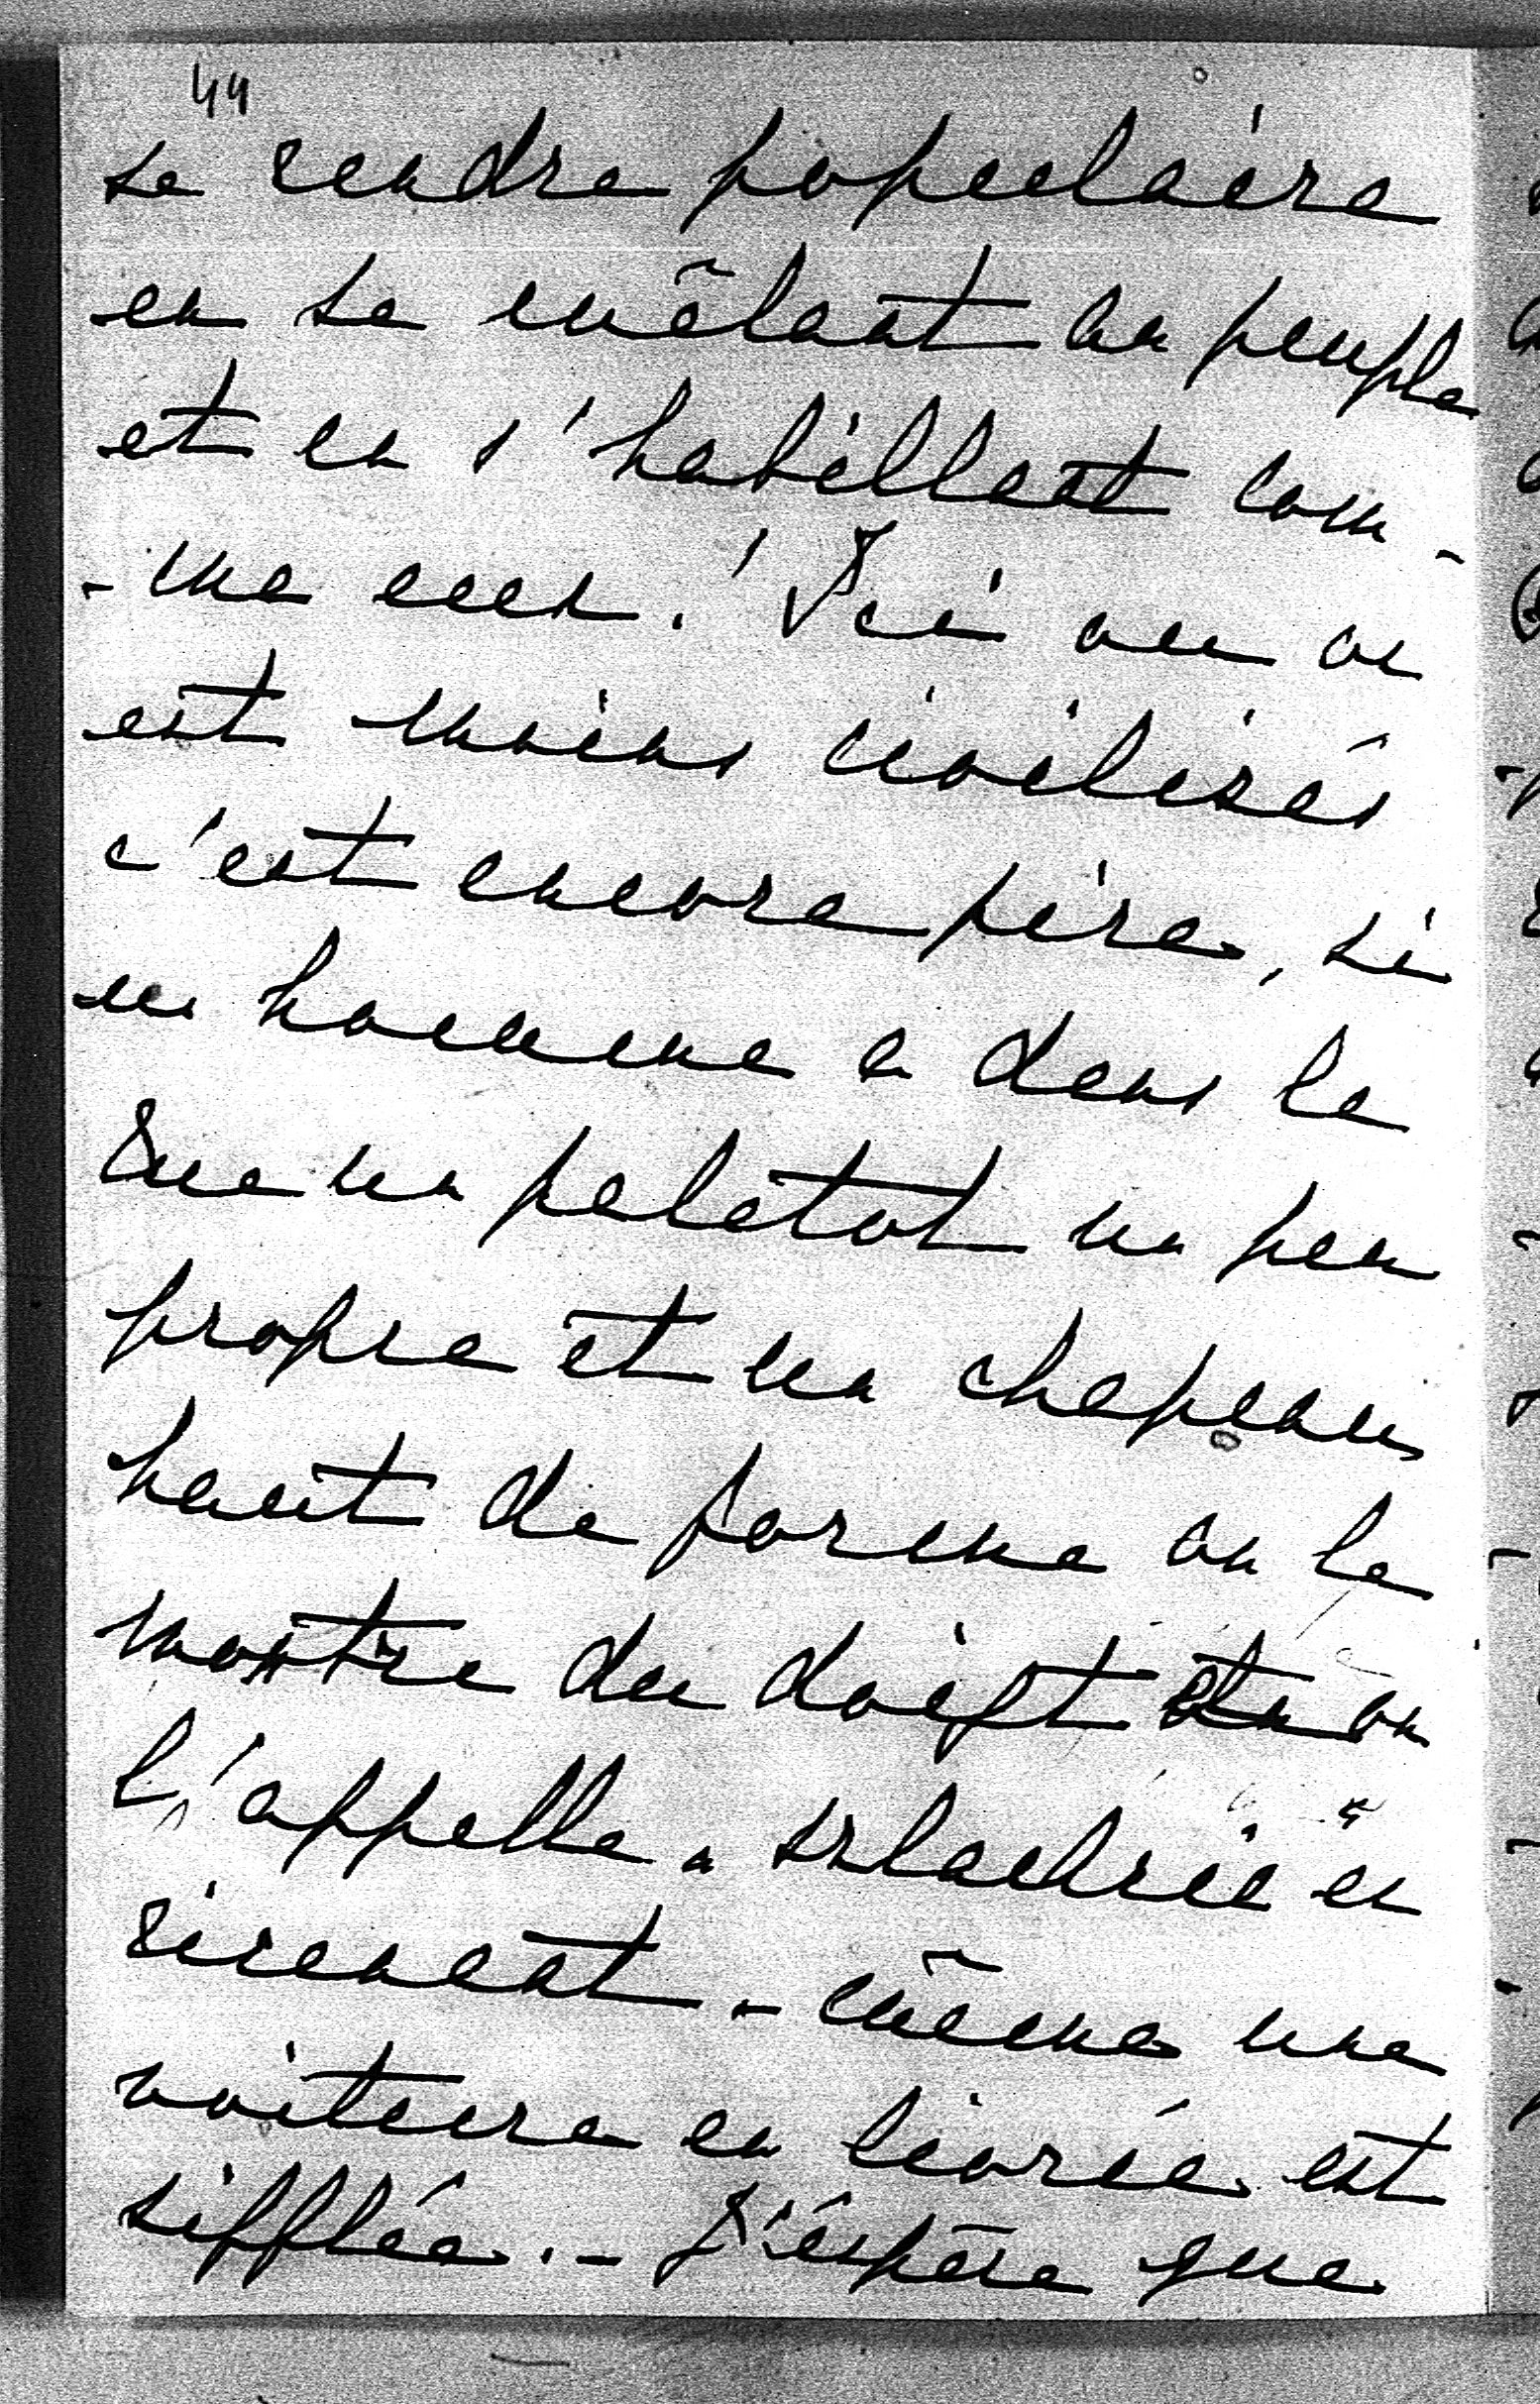 44
se rendre populaire
en se mêlant au peuple
et en s'habillant com-
-me eux! Ici où on
est moins civilisés
c'est encore pire, si
un homme a dans la
rue un paletot un peu
propre et un chapeau
haut de forme on le
montre du doigt et on
l'appelle " szlachcic" en
ricanant - même une
voiture en livrée est
sifflée. - J'éspère que